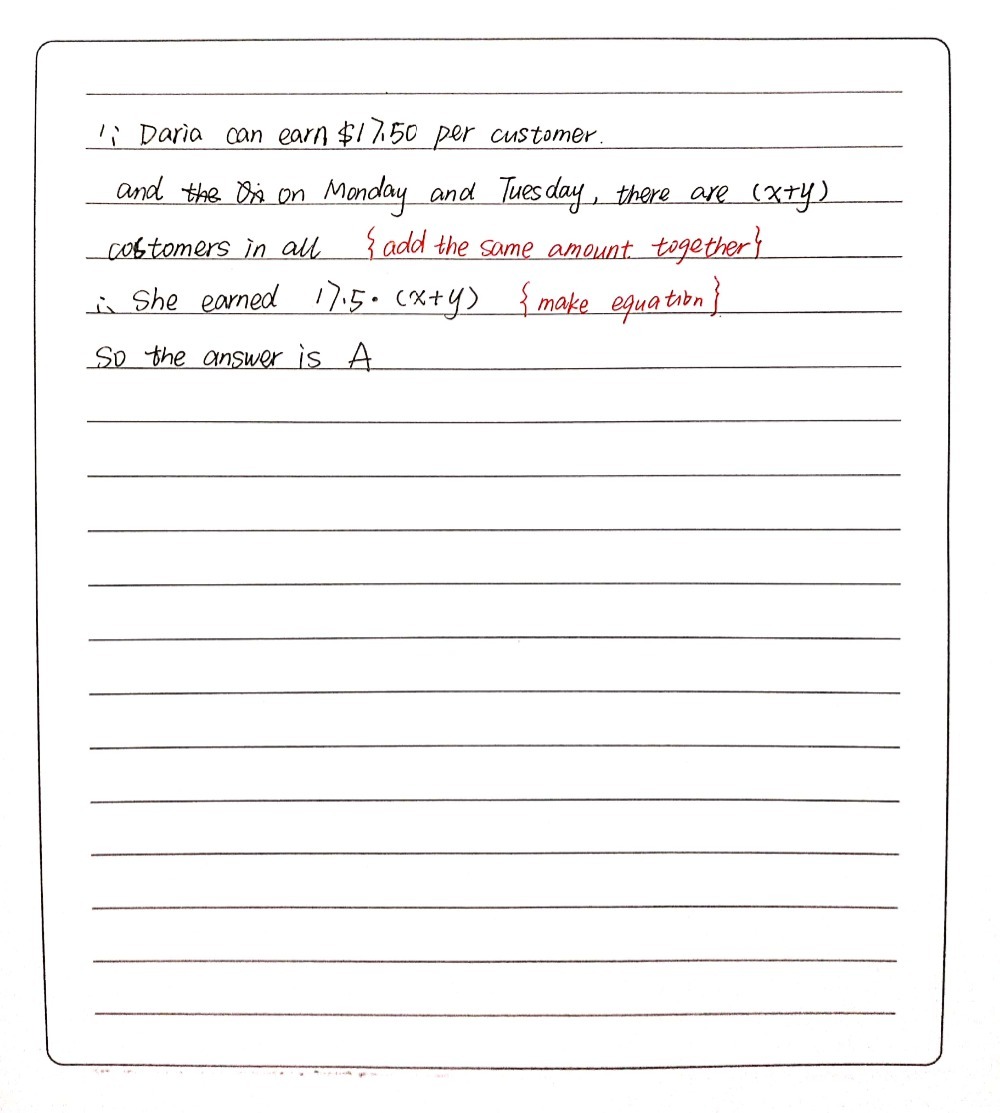 ∵ Daria can earn $17.50 per customer.
and the On on Monday and Tuesday, there are (x+y)
costomers in all {add the same amount together}
∴ She earned 17.5·(x+y) {make equation}
So the answer is A